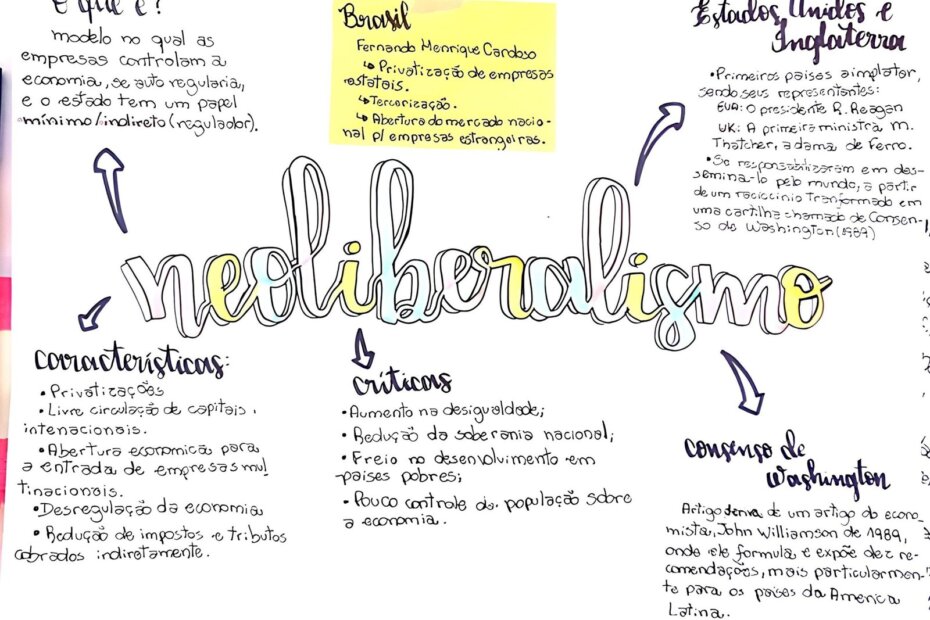 O que é?
modelo no qual as
empresas controlam a
economia, se auto regularia,
e o estado tem um papel
mínimo/indireto (regulador).
Brasil
Fernando Henrique Cardoso
↳ Privatização de empresas
estatais.
↳ Tercerização.
↳ Abertura do mercado nacio-
nal p/ empresas estrangeiras.
Estados Unidos e
Inglaterra
• Primeiros países a implatar,
sendo seus representantes:
EUA: O presidente R. Reagan
UK: A primeira ministra M.
Thatcher, a dama de Ferro.
• Se responsabilizaram em des-
semina-lo pelo mundo, a partir
de um raciocínio Tranformado em
uma cartilha chamado de Consen-
so de Washington (1989)
neoliberalismo
características:
• Privatizações
• Livre circulação de capitais
intenacionais.
• Abertura economica para
a entrada de empresas mul
tinacionais.
• Desregulação da economia
• Redução de impostos e tributos
cobrados indiretamente.
críticas
• Aumento na desigualdade;
• Redução da soberania nacional;
• Freio no desenvolvimento em
países pobres;
• Pouco controle da população sobre
a economia.
consenso de
Washington
Artigo deriva de um artigo do econo-
mista, John Williamson de 1989,
onde ele formula e expõe dez re-
comendações, mais particularmen-
te para os países da America
Latina.